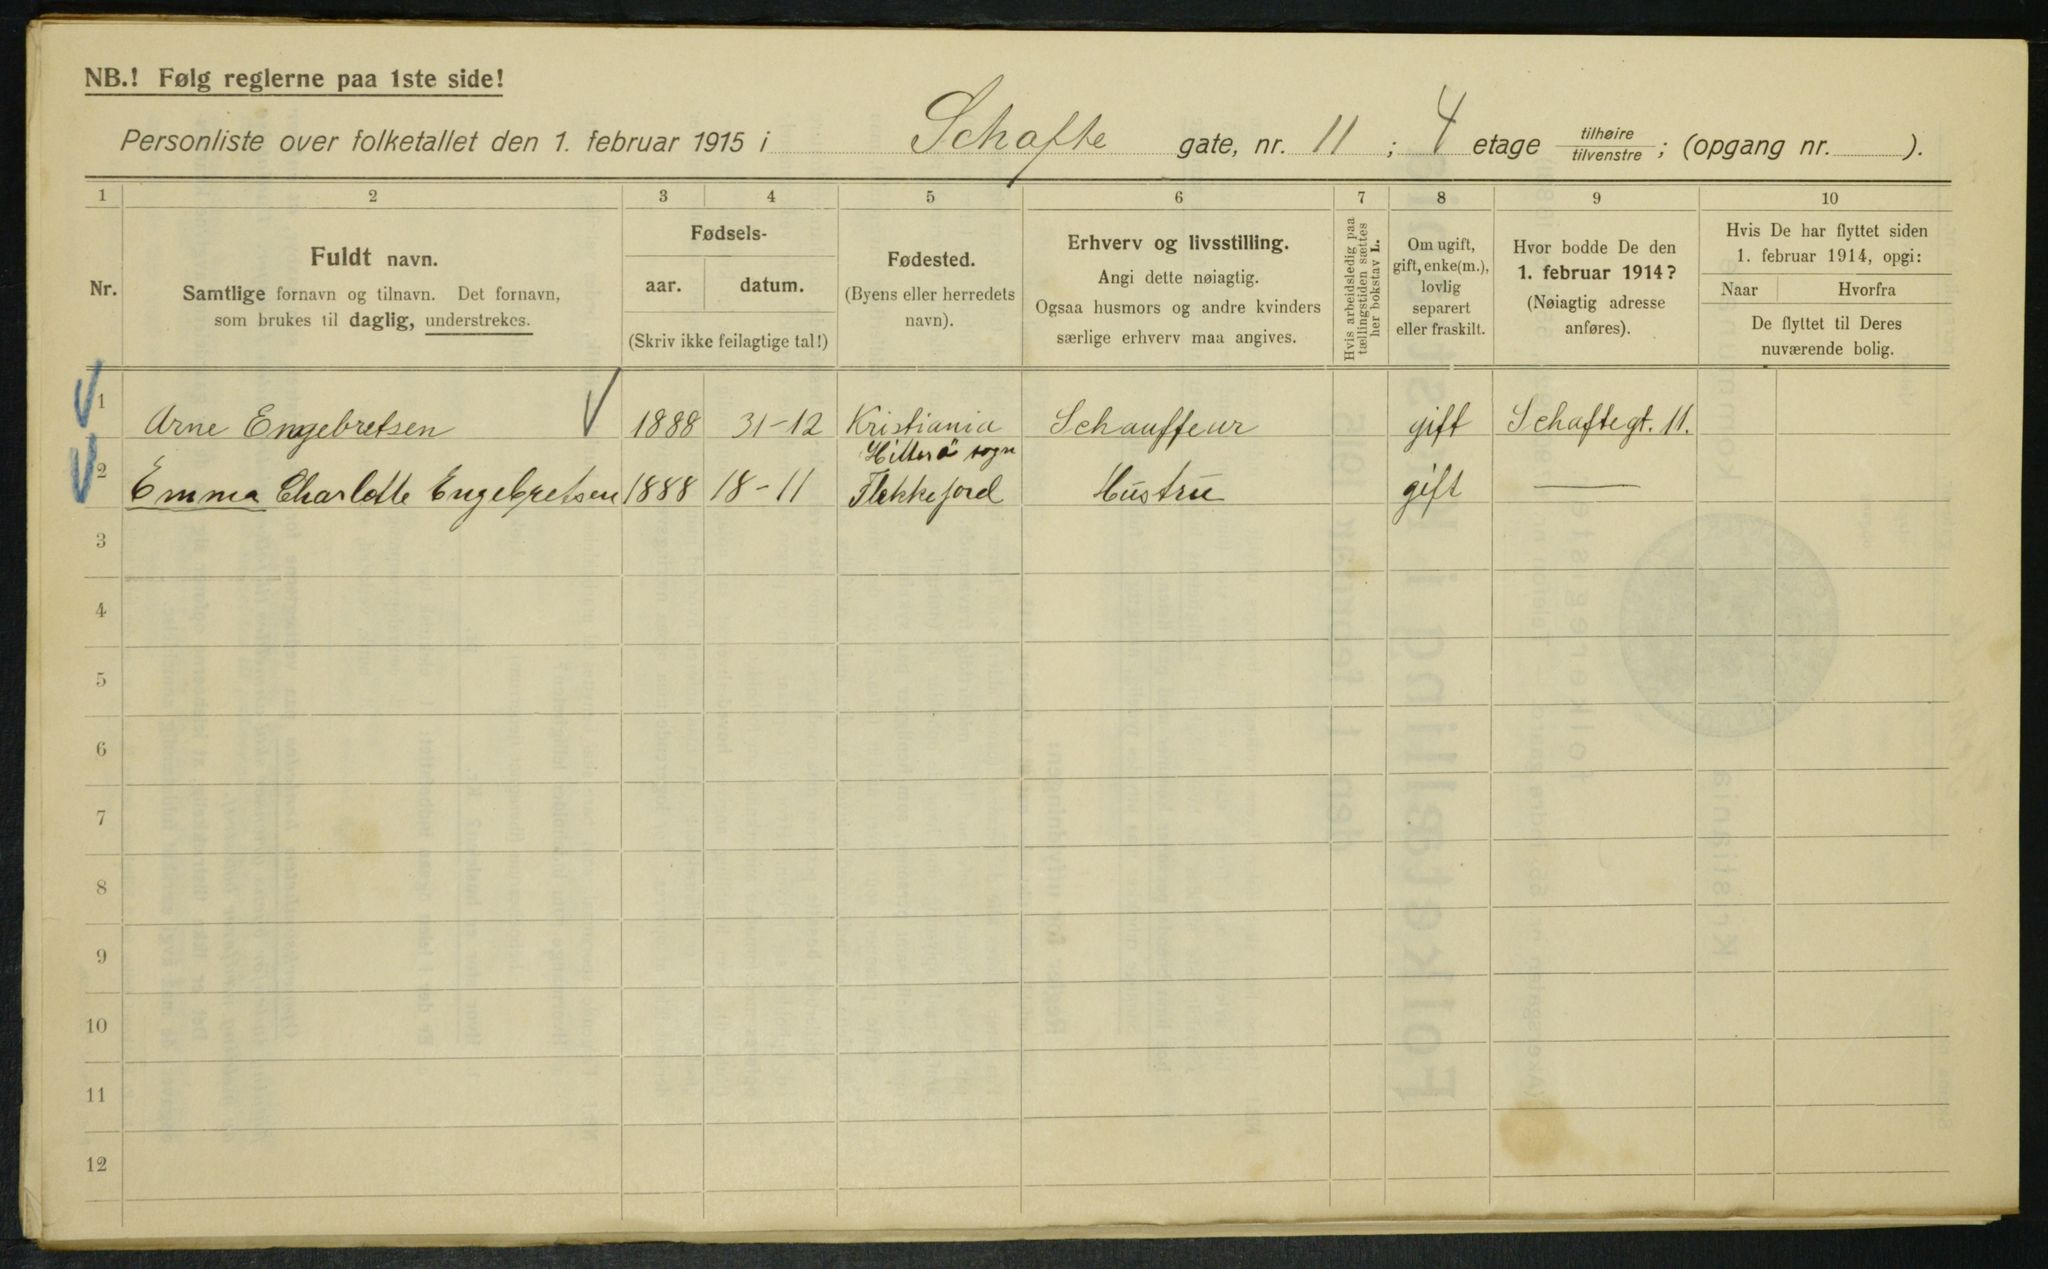 NB.! Følg reglerne paa 1ste side!
Personliste over folketallet den 1. februar 1915 i Schafte gate, nr. 11 ; 4 etage tilhøire / tilvenstre ; (opgang nr. ).
1 2 3 4 5 6 7 8 9 10
Nr.
Fuldt navn.
Samtlige fornavn og tilnavn. Det fornavn,
som brukes til daglig, understrekes.
Fødsels-
aar. datum.
(Skriv ikke feilagtige tal!)
Fødested.
(Byens eller herredets
navn).
Erhverv og livsstilling.
Angi dette nøiagtig.
Ogsaa husmors og andre kvinders
særlige erhverv maa angives.
Hvis arbeidsledig paa
tællingstiden sættes
her bokstav L.
Om ugift,
gift, enke(m.),
lovlig
separert
eller fraskilt.
Hvor bodde De den
1. februar 1914?
(Nøiagtig adresse
anføres).
Hvis De har flyttet siden
1. februar 1914, opgi:
Naar Hvorfra
De flyttet til Deres
nuværende bolig.
1 Arne Engebretsen 1888 31-12 Kristiania Schauffeur gift Schaftegt. 11.
Hitterö sogn
2 Emma Charlotte Engebretsen 1888 18-11 Flekkefjord Hustru gift —
3
4
5
6
7
8
9
10
11
12